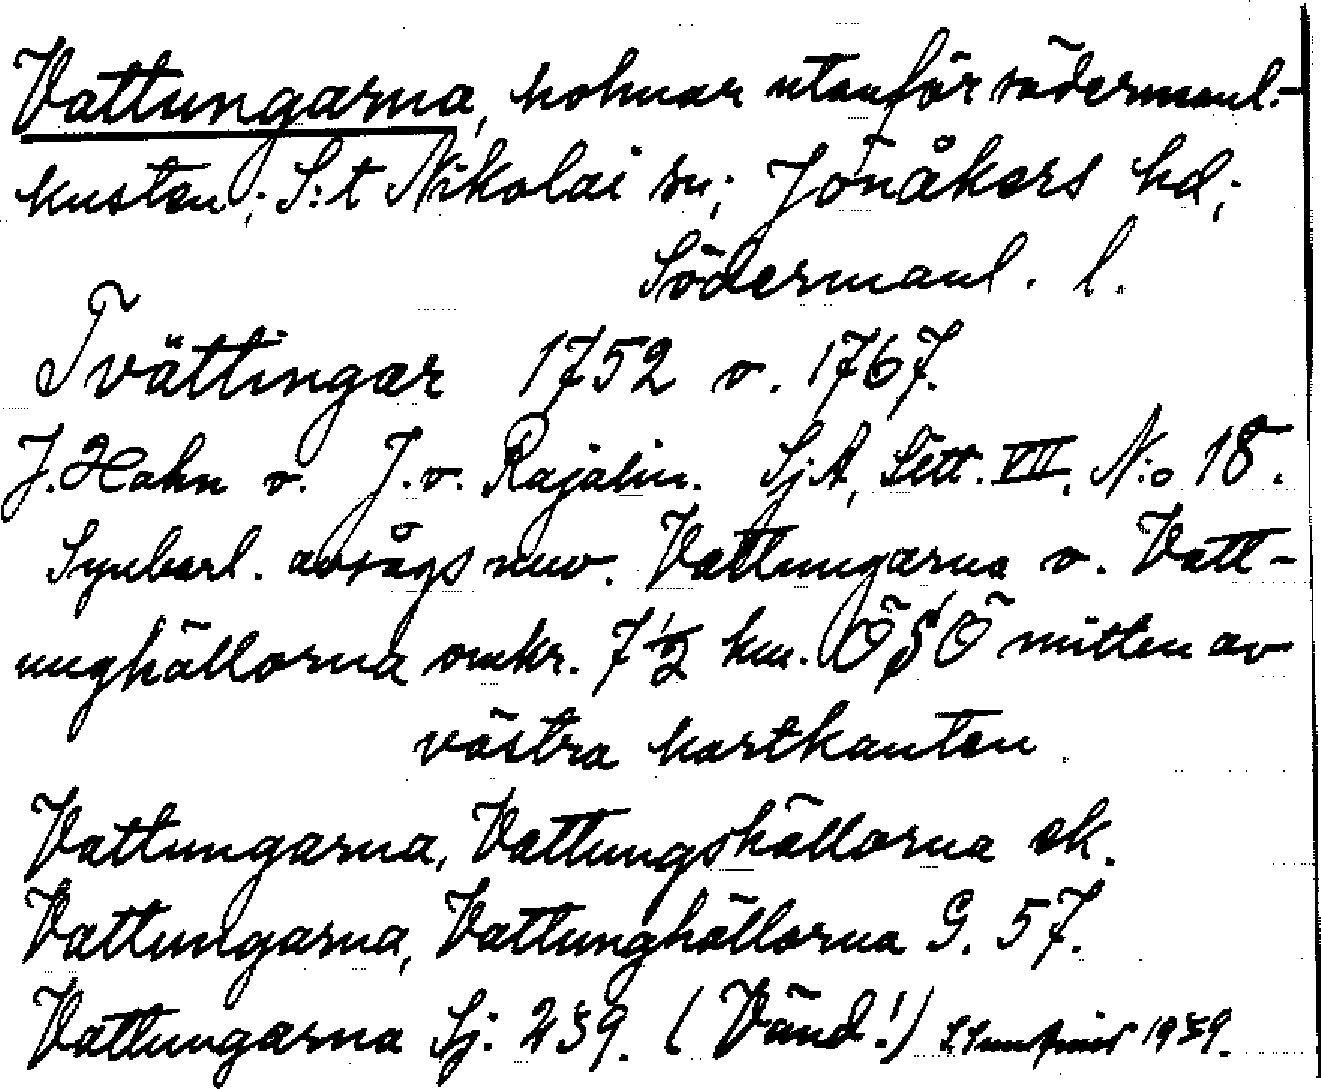 Vattungarna, holmar utanför södermanl.-
kusten; S:t Nikolai sn; Jönåkers hd;
Södermanl. l.
Tvättingar 1752 o. 1767.
J. Hahn o. J. v. Rajalin. SjA, Sett. VII, N:o 18.
Synbarl. avsågs nuv. Vattungarna o. Vatt-
unghällorna omkr. 7 1/2 km. ÖSÖ mitten av
västra kartkanten.
Vattungarna, Vattungshällorna ek.
Vattungarna, Vattunghällorna G. 57.
Vattungarna Sj. 239. (Vänd!) 1939.